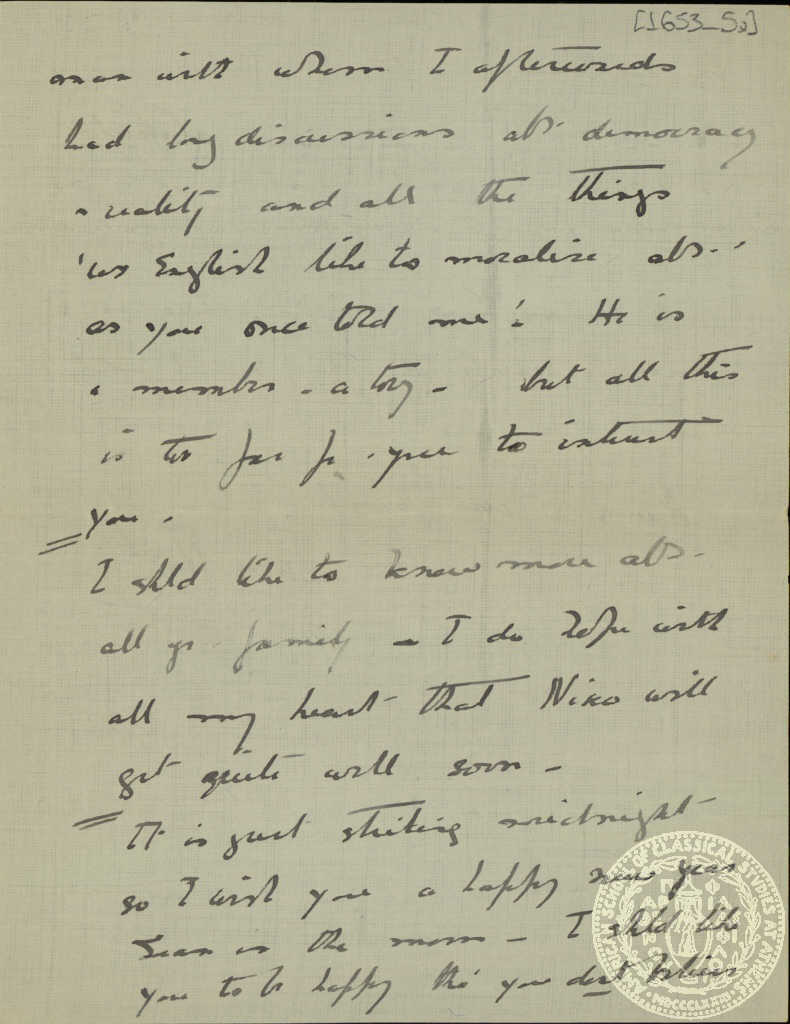 [1653_5a]
man with whom I afterwards
had long discussions abt. democracy
reality and all the things
'we English like to moralise abt.'
as you once told me! He is
a member - a tory - but all this
is too far fr. you to interest
you.
I shld like to know more abt.
all yr family - I do hope with
all my heart that Niko will
get quite well soon -
It is just striking midnight
so I wish you a happy new year
in the - I shld like
you to be happy tho' you dont believe
SCHOOL OF CLASSICAL STUDIES AT ATHENS
MDCCCLXXXI